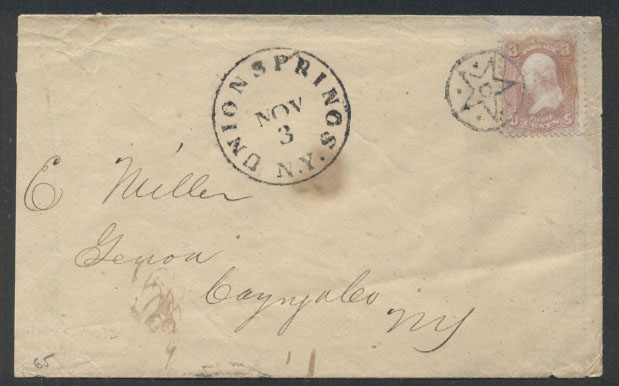 UNION SPRINGS. N.Y.
NOV
3
3 3
THREE
CENTS
E Miller
Genoa
Cayuga Co
NY
65